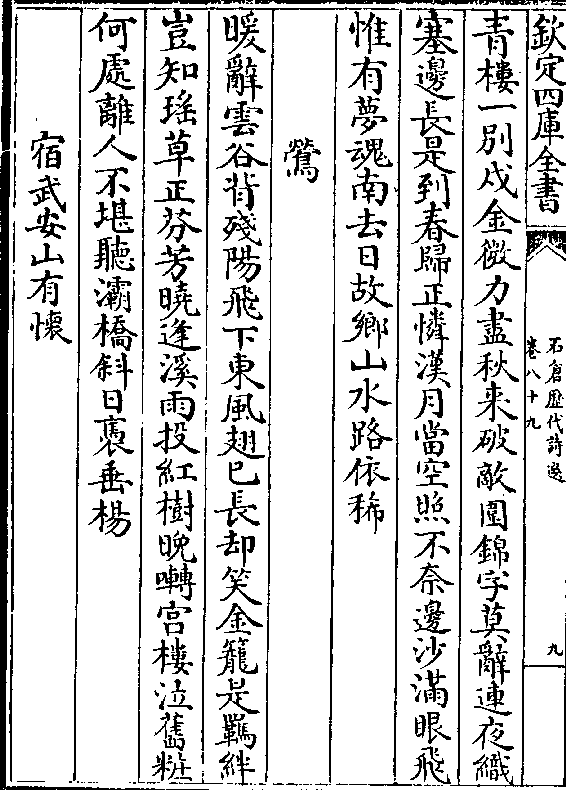 欽定四庫全書
石倉歷代詩選
卷八十九
九
青樓一別戍金微力盡秋来破敵圍錦字莫辭連夜織
塞邊長是到春歸正憐漢月當空照不奈邊沙滿眼飛
惟有夢魂南去日故鄉山水路依稀
鶯
暖辭雲谷背殘陽飛下東風翅已長却笑金籠是羈絆
豈知瑤草正芬芳曉逢溪雨投紅樹晚囀宫樓泣舊粧
何處離人不堪聽灞橋斜日裊垂楊
宿武安山有懷